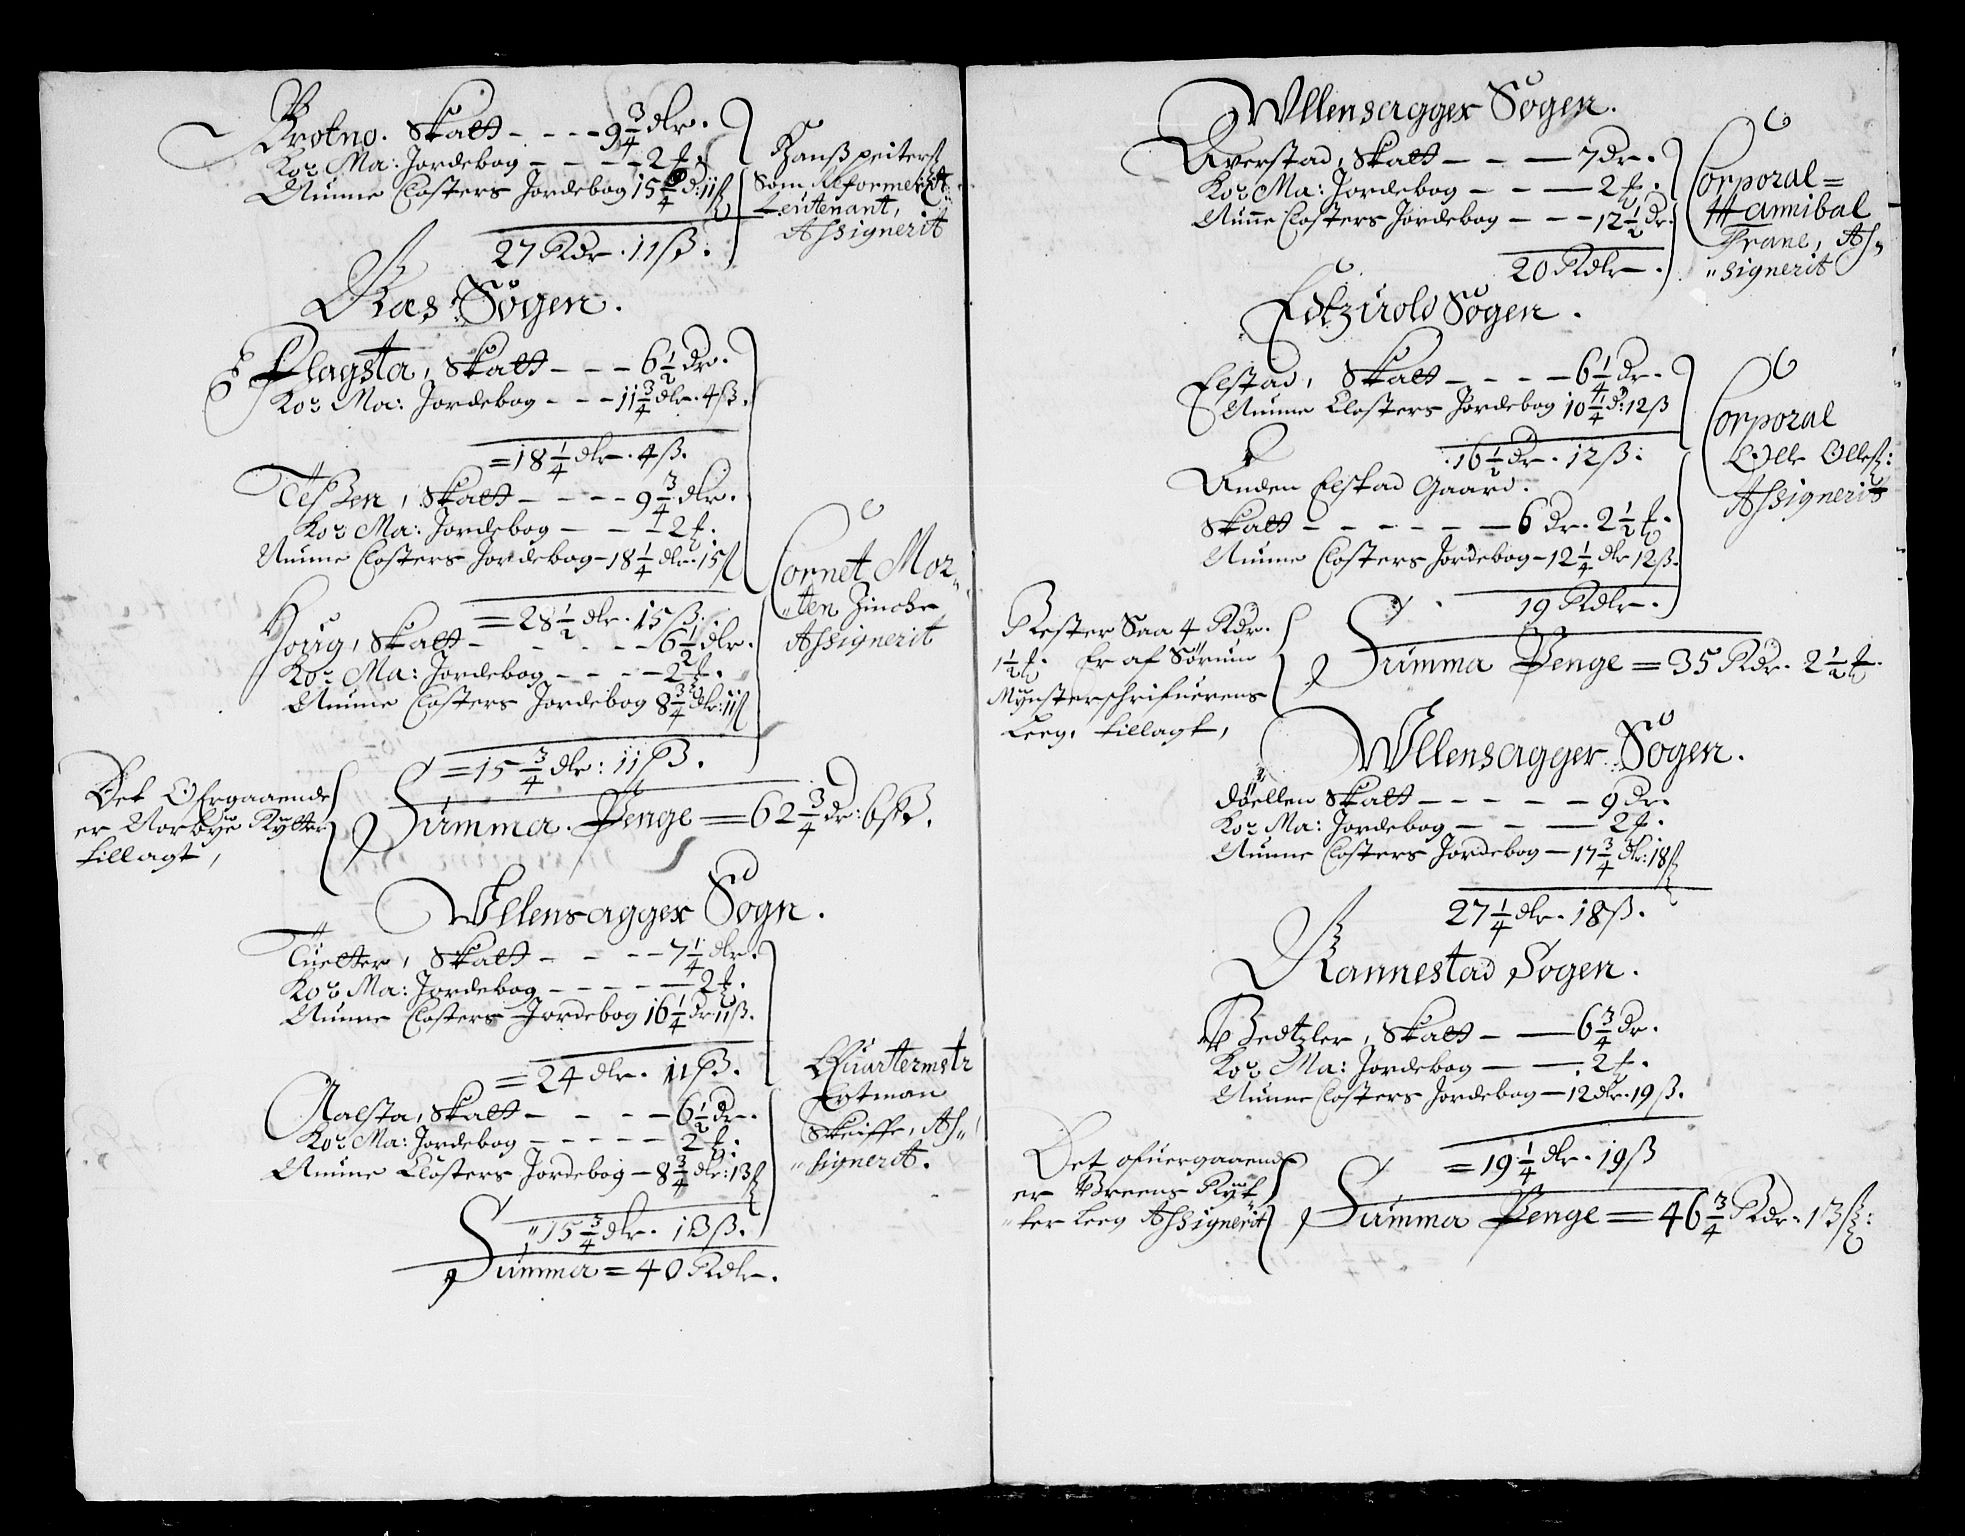 Brotno. Skatt - - - - 9 3/4 dlr.
Ko: Ma: Jordebog - - - - 2 t.
Nunne Closters Jordebog 15 1/4 d: 11 ß
27 Rdr. 11 ß.
Hanß peiterß
Som Reformerit
Leutenant,
Assignerit
Raes Sogen.
Plagsta, Skatt - - - 6 1/2 Dr.
Ko: Ma: Jordebog - - - 11 3/4 dlr. 4 ß.
= 18 1/4 dlr. 4 ß.
Teßen, Skatt - - - - 9 3/4 dlr.
Ko: Ma: Jordebog - - - 2 t.
Nunne Closters Jordebog - 18 1/4 dlr. 15 ß
= 28 1/2 dlr. 15 ß.
Houg, Skatt - - - - 6 1/2 dlr.
Ko: Ma: Jordebog - - - - 2 t.
Nunne Closters Jordebog 8 3/4 dlr: 11 ß
= 15 3/4 dlr: 11 ß.
Cornet Mor„
„ten Zincke
Assignerit
Det Ofergaaende
er Norbye Rytter
tillagt,
Summa. Penge = 62 3/4 dr: 6 ß.
Ullensagger Sogn.
Tuetter, Skatt - - - - 7 1/4 dlr.
Ko: Ma: Jordebog - - - - - 2 t.
Nunne Closters Jordebog 16 1/4 dr 11 ß.
= 24 dlr. 11 ß.
Aalsta, Skatt - - - - 6 1/2 Dr.
Ko: Ma: Jordebog - - - - - 2 t.
Nunne Closters Jordebog - 8 3/4 dlr: 13 ß
„15 3/4 dlr. 13 ß.
Summa = 40 Rdlr.
Quartermstr
Ertman
Skeiffe, As„
„signerit.
Ullensagger Sogen.
Averstad, Skatt - - - 7 dr.
Ko: Ma: Jordebog - - - 2 t.
Nunne Closters Jordebog - - - 12 1/2 dr.
20 Rdlr.
Corporal =
Hannibal
Frane, As„
„signerit
Eidtzvold Sogen.
Elstad, Skatt - - - - 6 1/4 Dr.
Nunne Closters Jordebog 10 1/4 d: 12 ß
16 1/2 Dr. 12 ß:
Anden Elstad Gaard.
Skatt - - - - - - 6 Dr. 2 1/2 t.
Nunne Closters Jordebog - 12 1/4 dlr 12 ß.
19 Rdlr.
Corporal
Olle Olleß:
Assignerit
Rester Saa 4 Rdr.
1 1/2 t. Er af Sørum
Mynsterschrifuerens
Leeg, tillagt,
Summa Penge = 35 Rdr. 2 1/2 t.
Ullensagger Sogen.
Døellen Skatt - - - - - 9 Dr.
Ko: Ma: Jordebog - - - 2 t.
Nunne Closters Jordebog - 17 3/4 dlr: 18 ß
27 1/4 dlr. 18 ß.
Nannestad Sogen.
Bedtzler, Skatt - - 6 3/4 Dr.
Ko: Ma: Jordebog - - 2 t.
Nunne Closters Jordebog - 12 dlr. 19 ß.
= 19 1/4 dlr. 19 ß
Det ofuergaaende
er Breens Ryt„
„ter Leeg Assignerit
Summa Penge = 46 3/4 Rdr. 13 ß: